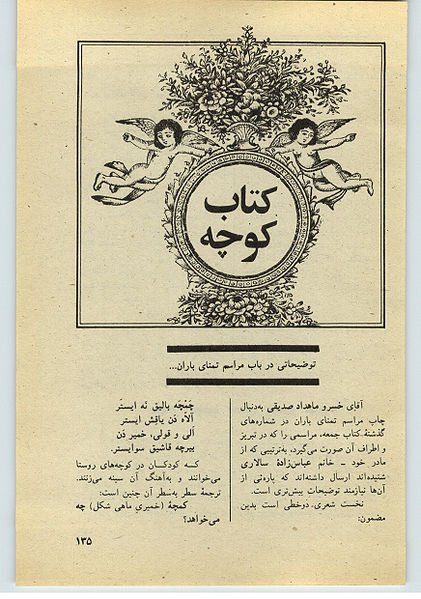 کتاب
کوچه
توضیحاتی در باب مراسم تمنای باران...
آقای خسرو ماهداد صدیقی به‌دنبال
چاپ مراسم تمنای باران در شماره‌های
گذشتهٔ کتاب جمعه، مراسمی را که در تبریز
و اطراف آن صورت می‌گیرد، به‌ترتیبی که از
مادر خود - خانم عباس‌زادهٔ سالاری
شنیده‌اند ارسال داشته‌اند که پاره‌ئی از
آن‌ها نیازمند توضیحات بیش‌تری است.
نخست شعری، دوخطی است بدین
مضمون:
چَمْچَه بالیق نَه ایستَر
آللاه دَن یاقِش ایستر
اَلی و قولی، خمیر دَن
بیرچه قاشیق سوایستر.
کـه کودکـان در کوچه‌های روستا
می‌خوانند و به‌آهنگ آن سینه می‌زنند.
ترجمهٔ سطر به‌سطر آن چنین است:
کمچهٔ (خمیریِ ماهی شکل) چه
می‌خواهد؟
۱۳۵